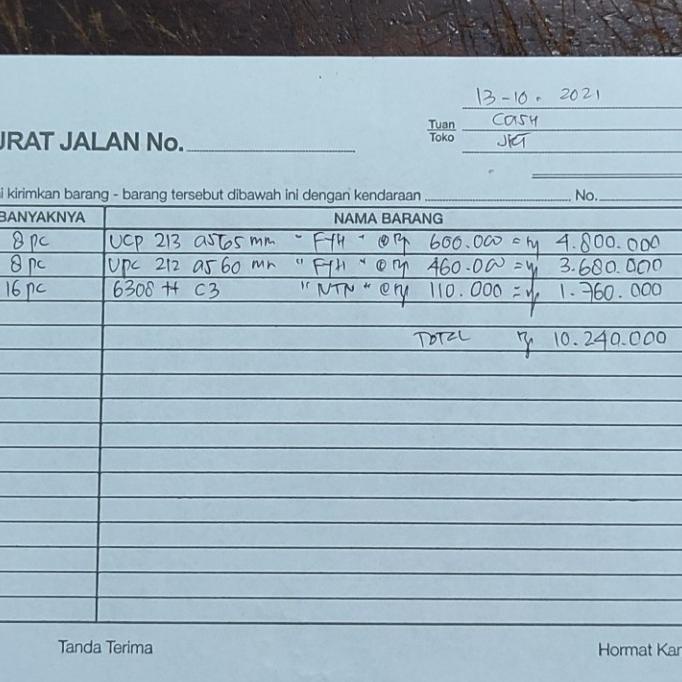 13-10. 2021
Tuan Cash
Toko JKT
URAT JALAN No.
i kirimkan barang - barang tersebut dibawah ini dengan kendaraan No.
BANYAKNYA NAMA BARANG
8 pc UCP 213 as 65 mm " FYH " @ Rp 600.000 = Rp 4.800.000
8 pc UPC 212 as 60 mm " FYH " @ Rp 460.000 = Rp 3.680.000
16 pc 6308 H C3 " NTN " @ Rp 110.000 = Rp 1.760.000
TOTAL Rp 10.240.000
Tanda Terima Hormat Kar